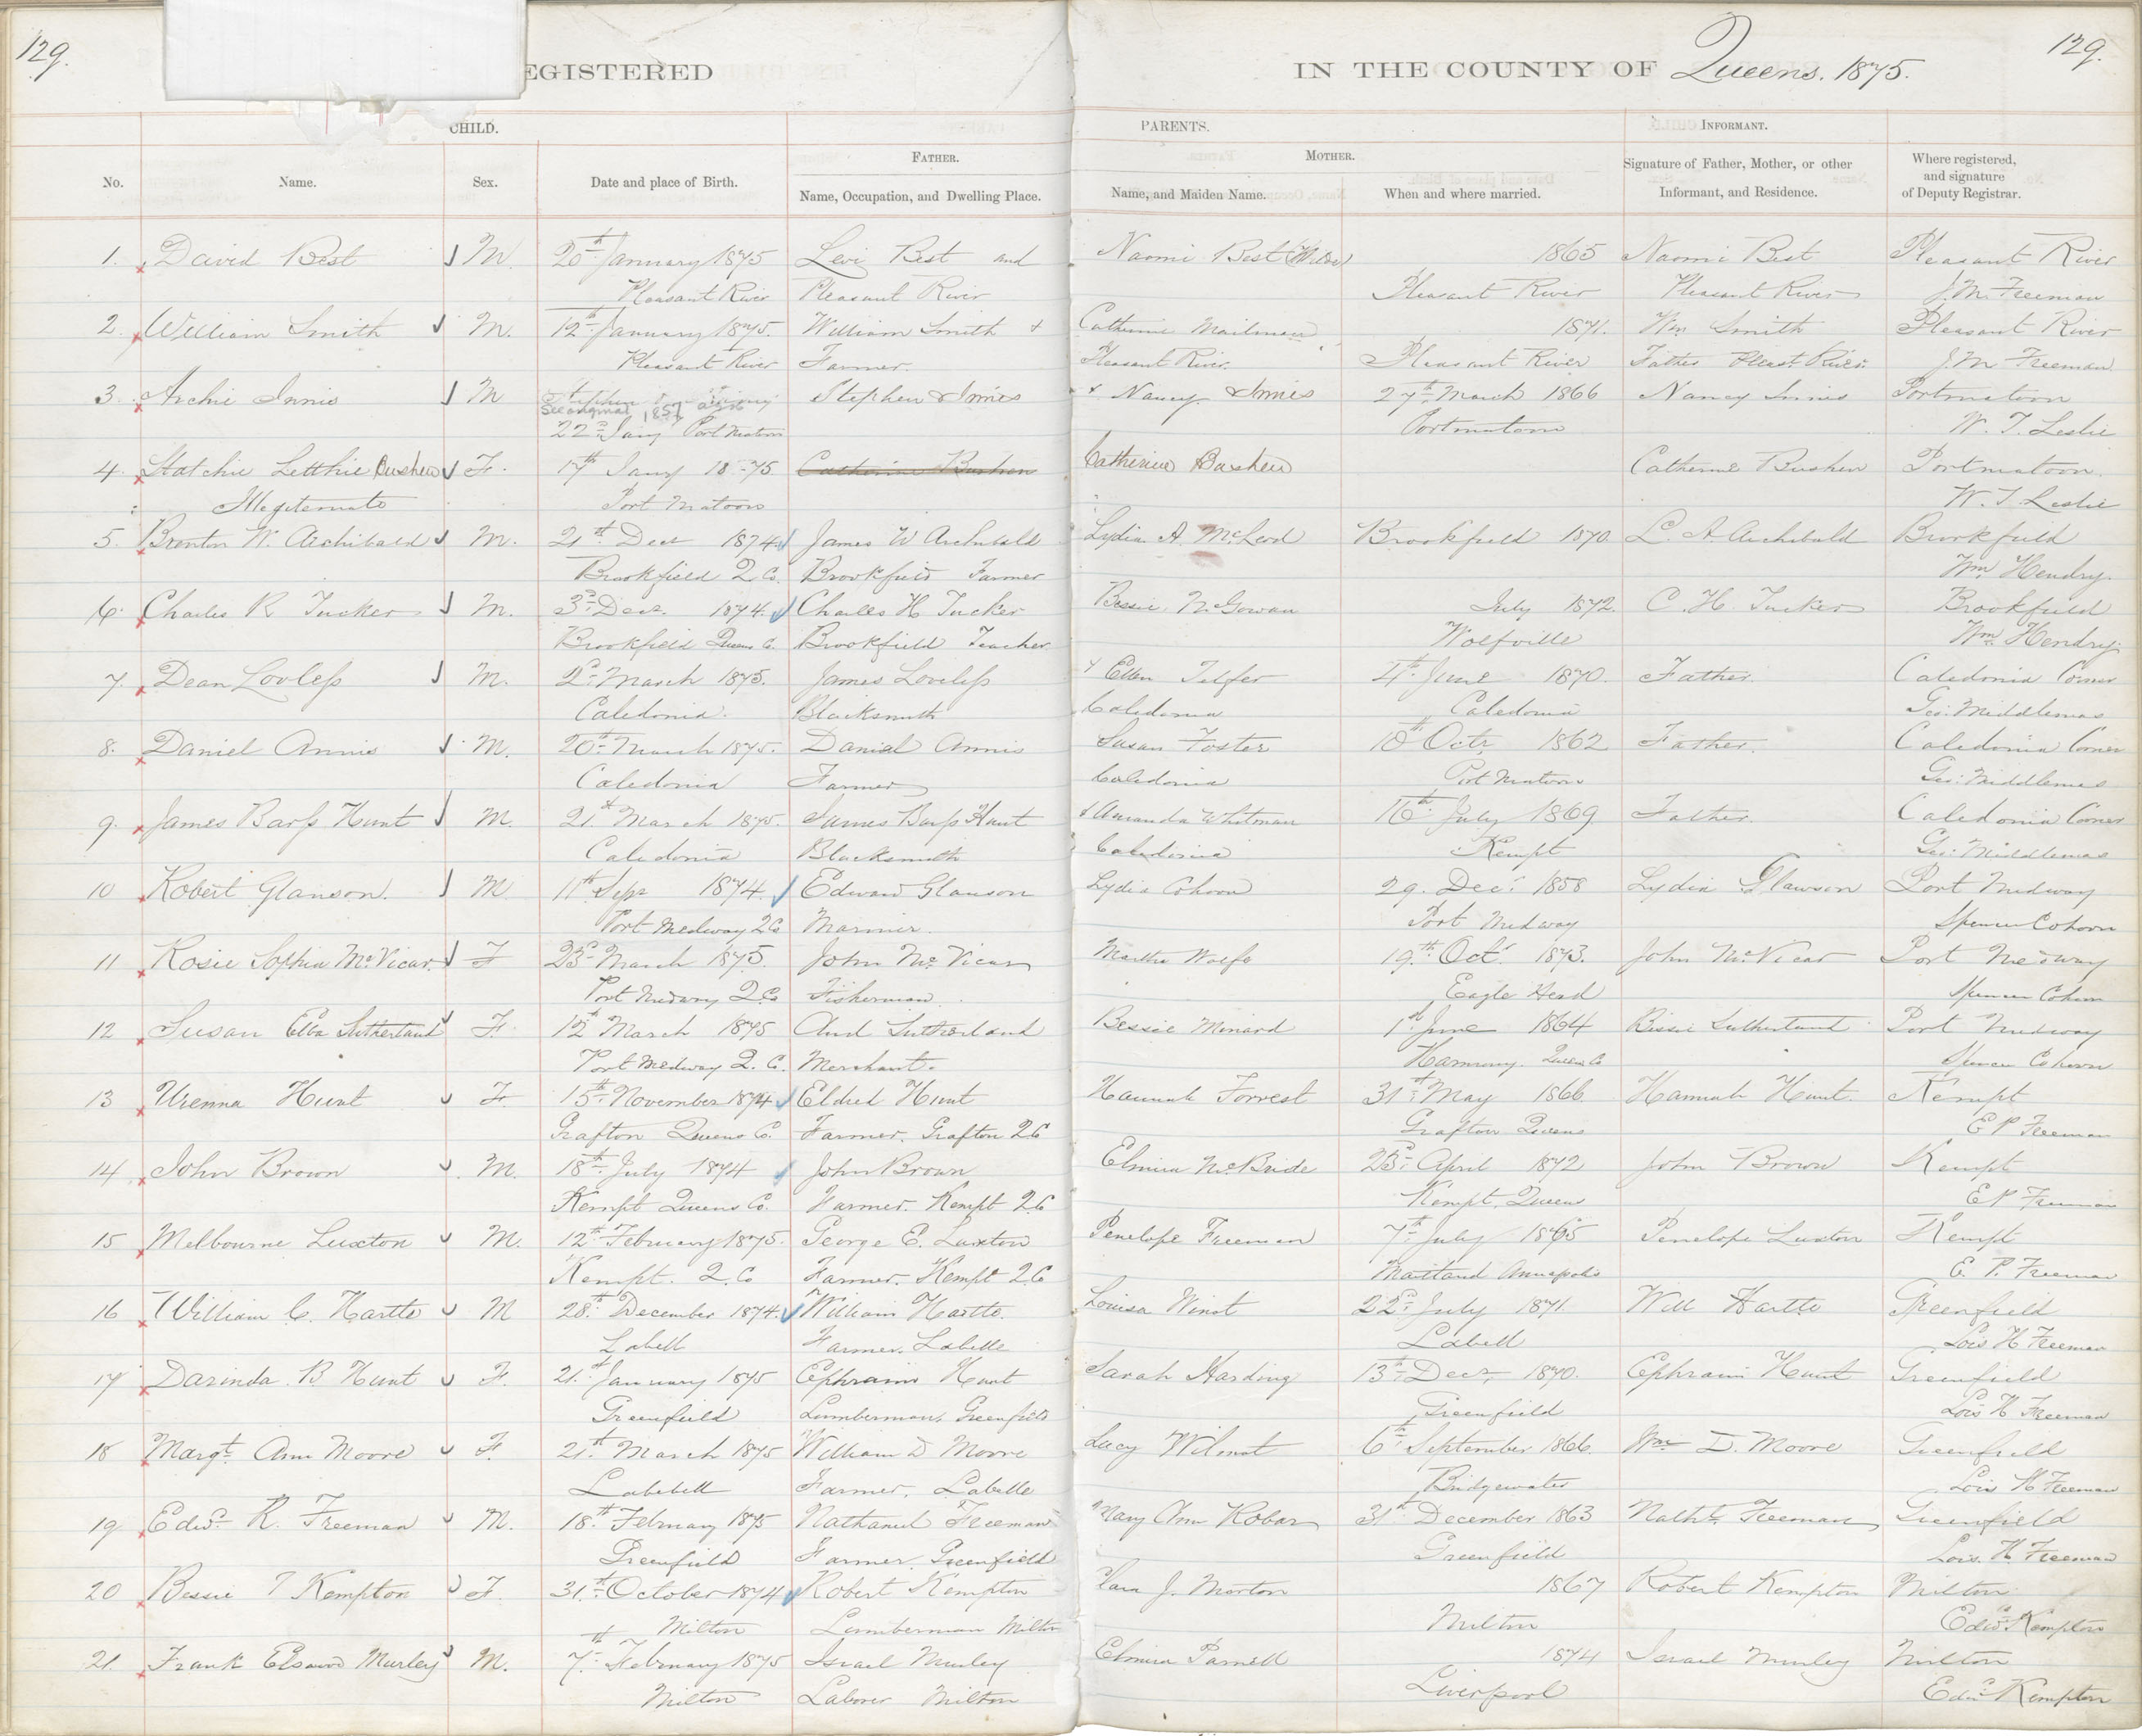 129. 129.
EGISTERED IN THE COUNTY OF Queens. 1875.
CHILD. PARENTS. INFORMANT.
FATHER. MOTHER. Signature of Father, Mother, or other Where registered,
and signature
No. Name. Sex. Date and place of Birth. Name, Occupation, and Dwelling Place. Name, and Maiden Name. When and where married. Informant, and Residence. of Deputy Registrar.
1. David Best M. 20th January 1875 Levi Best and Naomi Best 1865 Naomi Best Pleasant River
Pleasant River Pleasant River Pleasant River Pleasant River J. M. Freeman
2. William Smith M. 12th January 1875. William Smith + Catherine Mailman 1871. Wm Smith Pleasant River
Pleasant River Farmer. Pleasant River. Pleasant River Father Pleast River. J. M. Freeman
3. Archie Innis M Stephen & Innis + Nancy Innis 27th March 1866 Nancy Innis Portmatoon
See original 1851
22nd Jany Port Matoon Portmatoon W. T. Leslie
4. Statchie Letthie Bushen F. 17th Jany 1875 Catherine Bushen Catherine Bushen Catherine Bushen Portmatoon.
Illegitemate Port Matoon W. T. Leslie
5. Brenton W. Archibald M. 21st Decr 1874 James W Archibald Lydia A. McLeod Brookfield 1870 L. A. Archibald Brookfield
Brookfield Q Co. Brookfield Farmer Wm Hendry.
6. Charles R Tucker M. 3rd Decr. 1874. Charles H Tucker Bessie McGowan July 1872. C. H. Tucker Brookfield
Brookfield Queens C. Brookfield Teacher Wolfville Wm Hendry.
7. Dean Loveless M. 2nd March 1875. James Loveless + Ellen Telfer 4th June 1870. Father. Caledonia Corner
Caledonia. Blacksmith Caledonia Caledonia Geo: Middlemas
8. Daniel Annis M. 20th March 1875. Danial Annis Susan Foster 18th Octr 1862 Father. Caledonia Corner
Caledonia Farmer Caledonia Port Matoon Geo: Middlemas
9. James Barss Hunt M. 21st March 1875. James Barss Hunt & Amanda Whitman 16th July 1869 Father. Caledonia Corner
Caledonia Blacksmith Caledonia Kempt Geo: Middlemas
10 Robert Glanson. M. 11th Sepr 1874. Edward Glanson Lydia Cohoon 29. Decr 1858 Lydia Glawson Port Medway
Port Medway Q Co Mariner. Port Medway Spencer Cohoon
11 Rosie Sophia McVicar. F 23rd March 1875. John McVicar Martha Wolfe 19th Octr 1873. John McVicar Port Medway
Port Medway Q. Co Fisherman. Eagle Head Spencer Cohoon
12 Susan Elba Sutherland F. 12th March 1875 And Sutherland Bessie Minard 1st June 1864 Bessie Sutherland Port Medway
Port Medway Q. C. Merchant. Harmony. Queens Co Spencer Cohoon
13 Urenna Hunt F. 15th November 1874 Eldred Hunt Hannah Forrest 31st May 1866 Hannah Hunt. Kempt
Grafton Queens C. Farmer. Grafton Q C Grafton Queens E P Freeman
14 John Brown M. 18th July 1874 John Brown Elmira McBride 23rd April 1872 John Brown Kempt
Kempt Queens Co. Farmer. Kempt Q C Kempt. Queens E P Freeman
15 Melbourne Luxton M. 12th February 1875. George E. Luxton Penelope Freeman 7th July 1865 Penelope Luxton Kempt
Kempt. Q. Co Farmer. Kempt Q C Maitland Annapolis E. P. Freeman
16 William C. Hartto M 28th December 1874. William Hartto. Louisa Winot 22nd July 1871. Will Hartto Greenfield
Labell Farmer. Labelle Labell Lois H Freeman
17 Darinda B Hunt F. 21st January 1875 Ephraim Hunt Sarah Harding 13th Decr 1870. Ephraim Hunt Greenfield
Greenfield Lumberman, Greenfield Greenfield Lois H Freeman
18 Margt. Ann Moore F. 21st March 1875 William D Moore Lucy Wilmot 6th September 1866. Wm D. Moore Greenfield
Labebell Farmer. Labelle Bridgewater Lois H Freeman
19 Edwd. R. Freeman M. 18th February 1875 Nathaniel Freeman Mary Ann Robar 31st December 1863 Nathl. Freeman Greenfield
Greenfield Farmer. Greenfield Greenfield Lois. H. Freeman
20 Bessie T Kempton F. 31st October 1874 Robert Kempton Clara J. Morton 1867 Robert Kempton Milton
Milton Lumberman Milton Milton Edwd Kempton
21. Frank Elswood Murley M. 7th February 1875 Israel Murley Elmira Parnell 1874 Israel Murley Milton
Milton Laborer Milton Liverpool Edwd Kempton